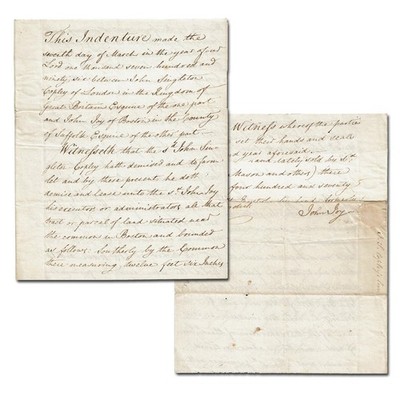 This Indenture made the
seventh day of March in the year of our
Lord one thousand seven hundred and
ninety six between John Singleton
Copley of London in the Kingdom of
Great Britain Esquire of the one part
and John Joy of Boston in the County
of Suffolk Esquire of the other part
Witnesseth that the sd. John Sin-
gleton Copley hath demised and to farm
let and by these presents he doth
demise and lease unto the sd. John Joy
his executors or administrators all that
tract or parcel of land situated near
the common in Boston and bounded
as follows: Southerly by the Common
there measuring twelve feet six Inches
Witness whereof the parties
set their hands and seals
and year aforesaid.
land lately sold by sd.
Mason and others) thence
four hundred and seventy
John Joy